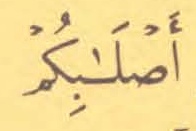 أَصْلَـٰبِكُمْ